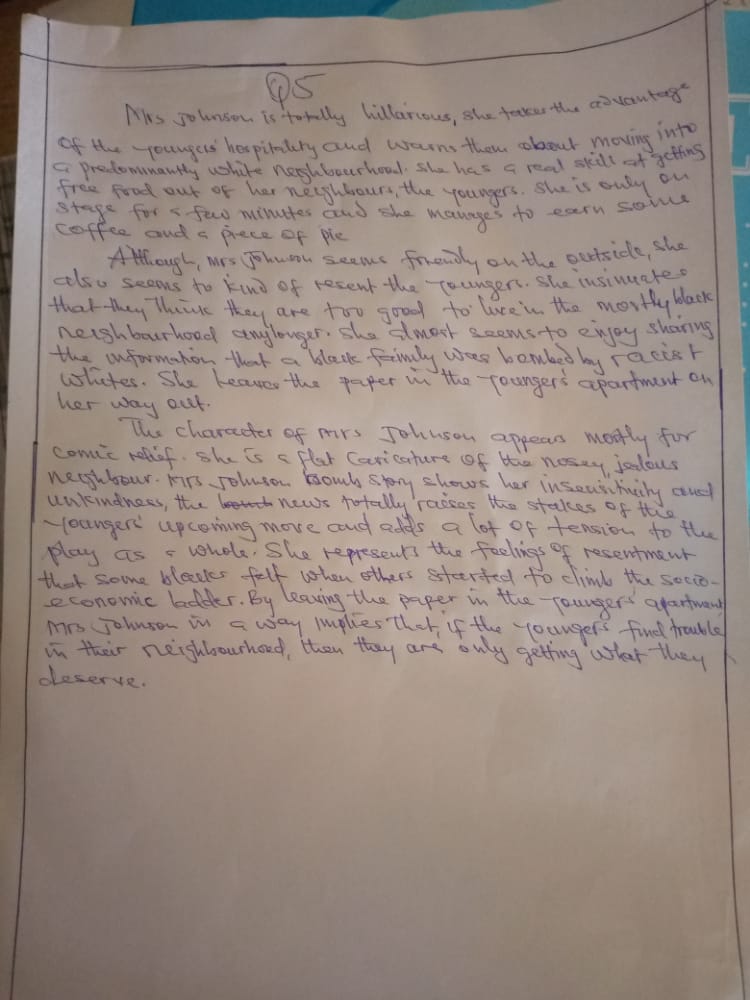 Q5
Mrs Johnson is totally hillarious, she takes the advantage
of the Youngers' hospitality and warns them about moving into
a predominantly white neighbourhood. She has a real skill at getting
free food out of her neighbours, the Youngers. She is only on
stage for a few minutes and she manages to earn some
coffee and a piece of pie
Although, Mrs Johnson seems friendly on the outside, she
also seems to kind of resent the Youngers. She insinuates
that they think they are too good to live in the mostly black
neighbourhood anylonger. She almost seems to enjoy sharing
the information that a black family was bombed by racist
whites. She leaves the paper in the Youngers' apartment on
her way out.
The character of Mrs Johnson appears mostly for
comic relief. She is a flat caricature of the nosey, jealous
neighbour. Mrs Johnson bomb story shows her insensitivity and
unkindness, the news totally raises the stakes of the
Youngers' upcoming move and adds a lot of tension to the
play as a whole. She represents the feelings of resentment
that some blacks felt when others started to climb the socio-
economic ladder. By leaving the paper in the Youngers' apartment,
Mrs Johnson in a way implies that, if the Youngers find trouble
in their neighbourhood, then they are only getting what they
deserve.